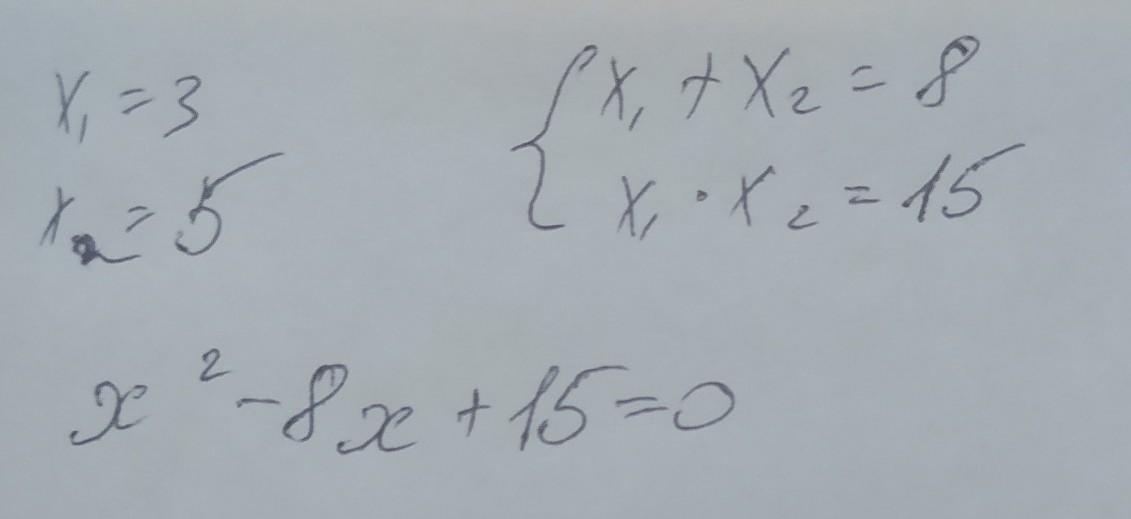 x₁ = 3
x₂ = 5
{ x₁ + x₂ = 8
x₁ · x₂ = 15
x² - 8x + 15 = 0